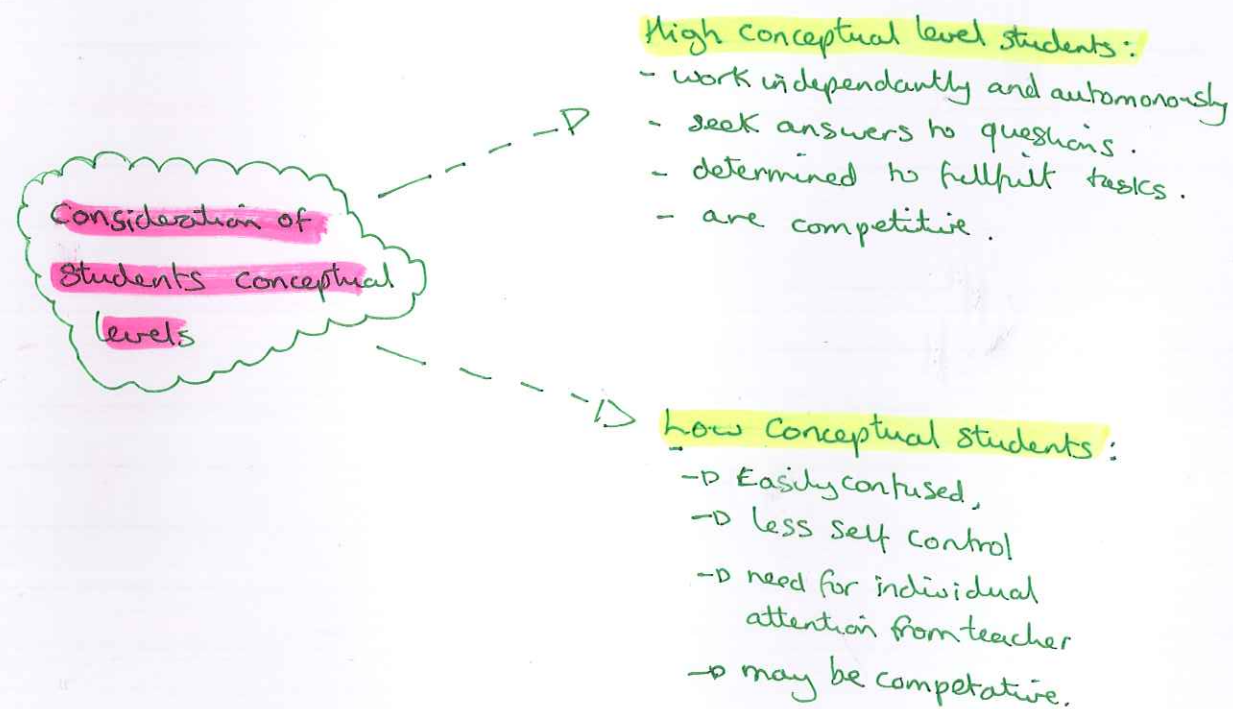 Consideration of
Students conceptual
levels
High conceptual level students:
- work independantly and automonously
- seek answers to questions.
- determined to fullfult tasks.
- are competitive.
Low Conceptual Students:
-D Easily confused,
-D less self control
-D need for individual
attention from teacher
-D may be competative.